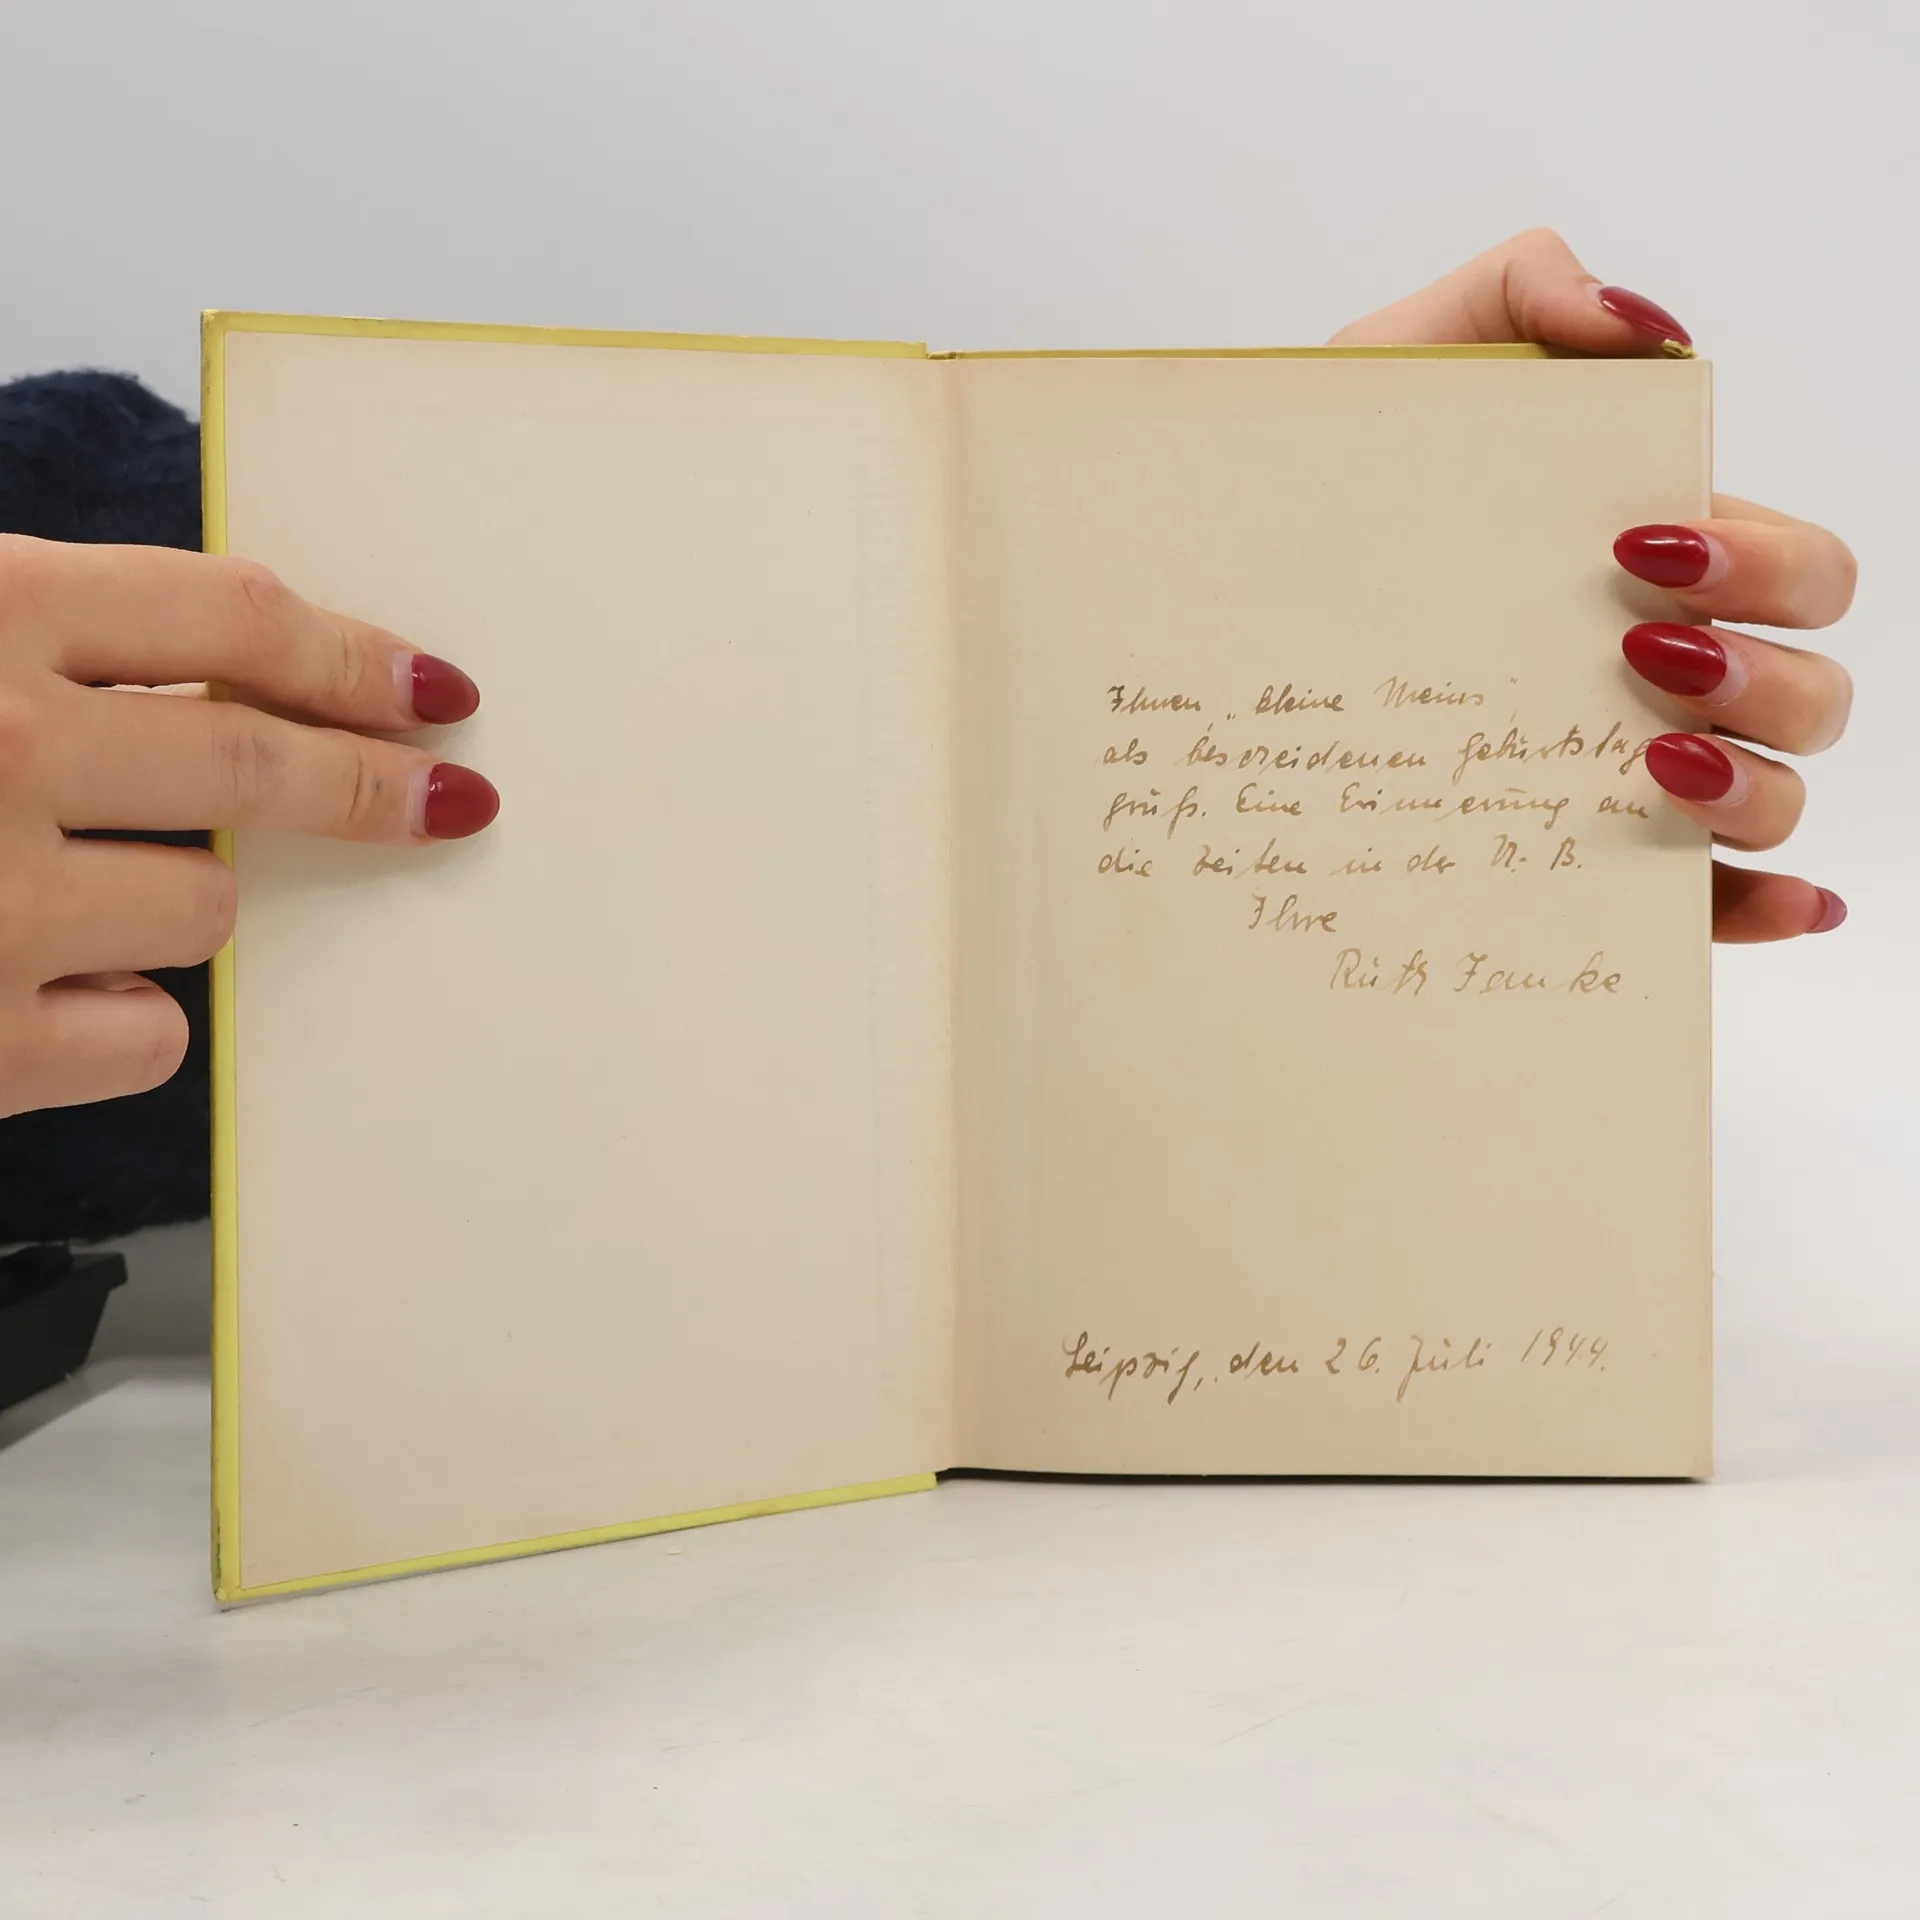 Ihnen, „kleine Meins",
als bescheidenen Geburtstag
gruß. Eine Erinnerung an
die Zeiten in der N. B.
Ihre
Ruth Janke.
Leipzig, den 26. Juli 1944.